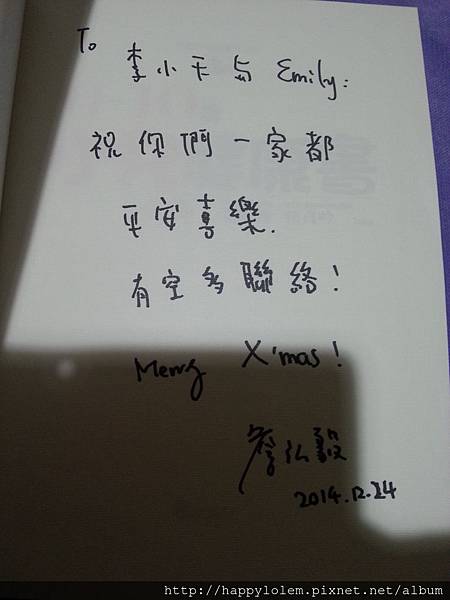 To
李小平與 Emily:
祝你們一家都
平安喜樂.
有空多聯絡!
Merry X'mas!
詹弘毅
2014.12.24
http://happylolem.pixnet.net/album